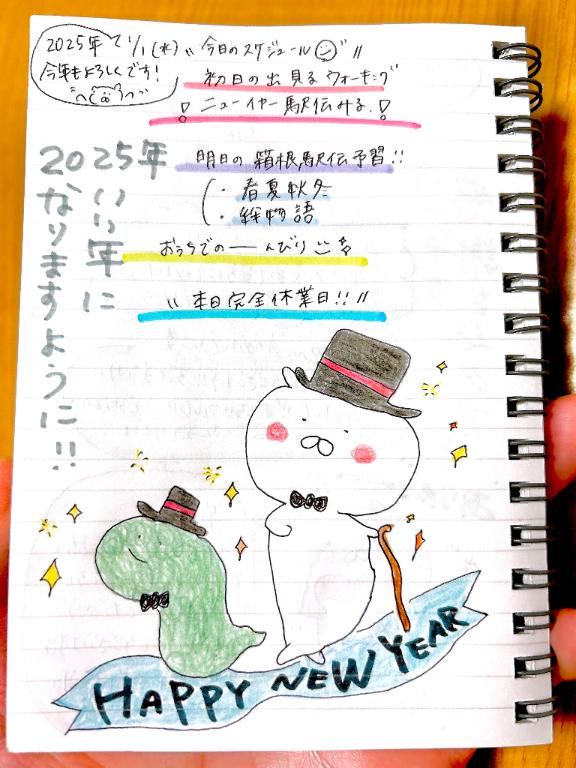 2025年 1/1(水)
今年もよろしくです!
"今日のスケジュール"
初日の出見るウォーキング
! ニューイヤー駅伝みる!
明日の箱根駅伝予習!!
・春夏秋冬
・絵物語
おうちでの――んびり
"本日完全休業日!!"
2025年
いい年に
なりますように!!
HAPPY NEW YEAR